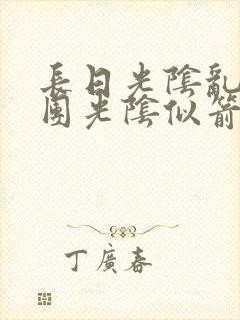 長日光陰亂
團光陰似箭
丁廣春